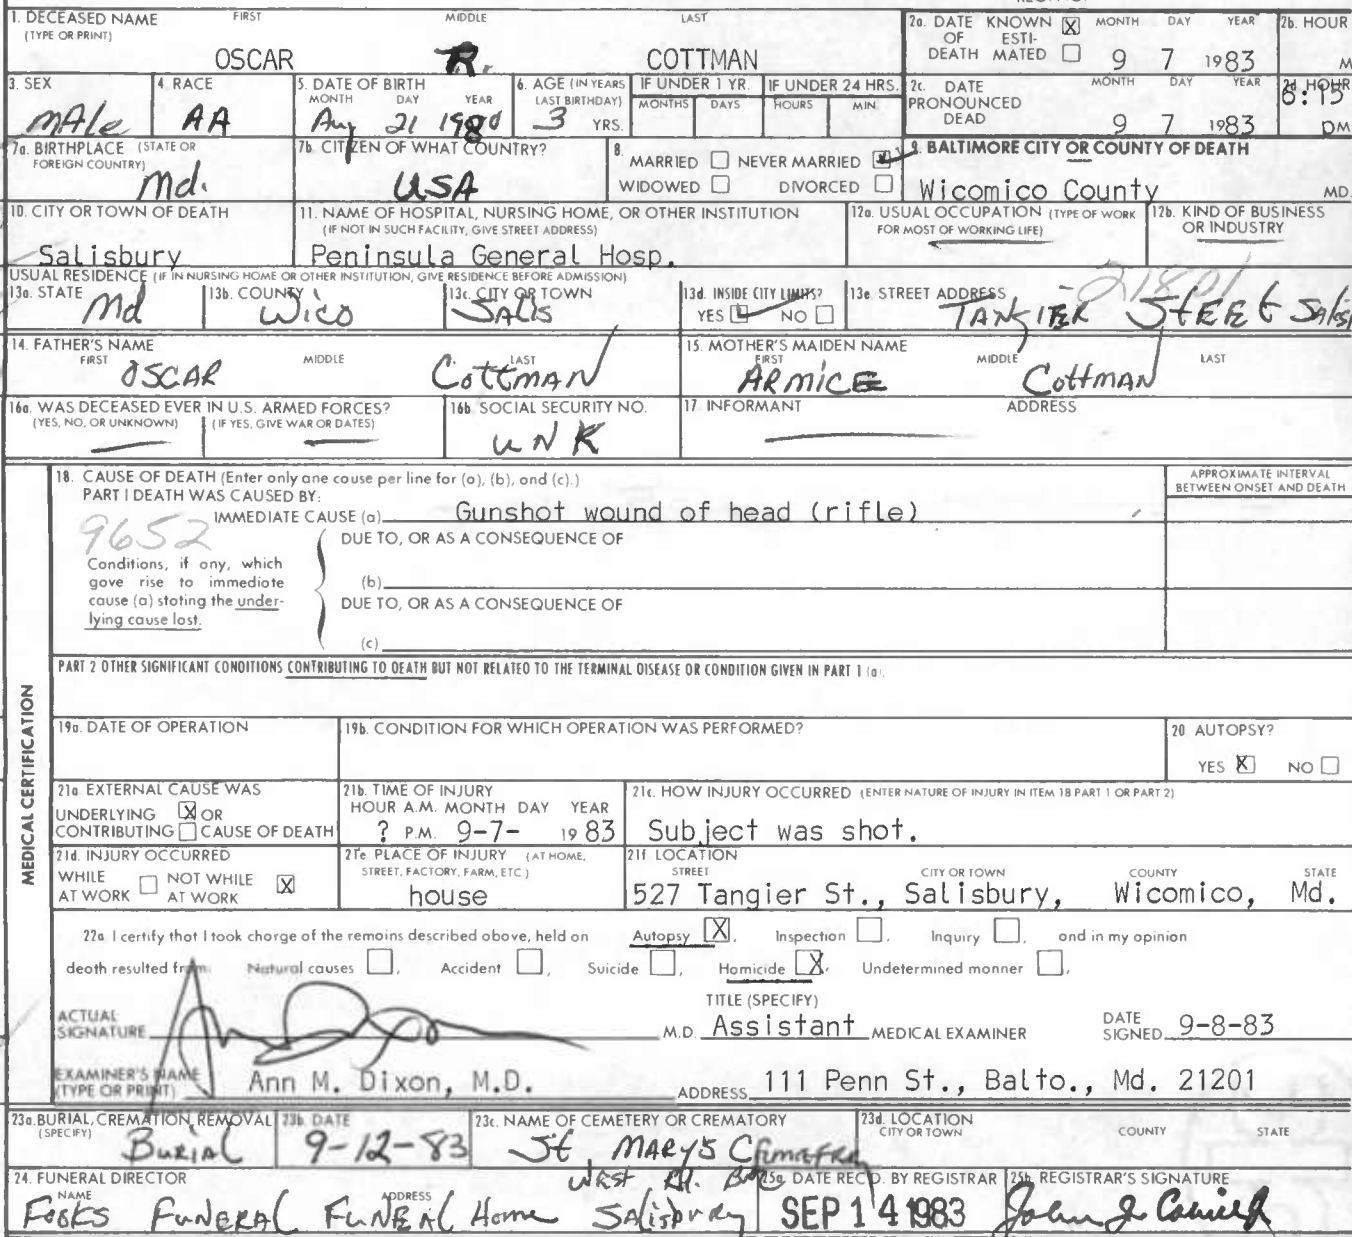 1. DECEASED NAME FIRST MIDDLE LAST
(TYPE OR PRINT)
OSCAR R. COTTMAN
2a. DATE KNOWN X MONTH DAY YEAR
OF ESTI-
DEATH MATED 9 7 1983
2b. HOUR
M
3. SEX
male
4. RACE
AA
5. DATE OF BIRTH
MONTH DAY YEAR
Aug 21 1980
6. AGE (IN YEARS
LAST BIRTHDAY)
3 YRS.
IF UNDER 1 YR.
MONTHS DAYS
IF UNDER 24 HRS.
HOURS MIN.
2c. DATE MONTH DAY YEAR
PRONOUNCED
DEAD 9 7 1983
2d. HOUR
8:15
PM
7a. BIRTHPLACE (STATE OR
FOREIGN COUNTRY)
Md.
7b. CITIZEN OF WHAT COUNTRY?
USA
8.
MARRIED NEVER MARRIED
WIDOWED DIVORCED
9. BALTIMORE CITY OR COUNTY OF DEATH
Wicomico County MD.
10. CITY OR TOWN OF DEATH
Salisbury
11. NAME OF HOSPITAL, NURSING HOME, OR OTHER INSTITUTION
(IF NOT IN SUCH FACILITY, GIVE STREET ADDRESS)
Peninsula General Hosp.
12a. USUAL OCCUPATION (TYPE OF WORK
FOR MOST OF WORKING LIFE)
12b. KIND OF BUSINESS
OR INDUSTRY
USUAL RESIDENCE (IF IN NURSING HOME OR OTHER INSTITUTION, GIVE RESIDENCE BEFORE ADMISSION)
13a. STATE
Md
13b. COUNTY
Wico
13c. CITY OR TOWN
SALIS
13d. INSIDE CITY LIMITS?
YES NO
13e. STREET ADDRESS
21801
TANGIER StEEt Salis
14. FATHER'S NAME
FIRST MIDDLE LAST
OSCAR Cottman
15. MOTHER'S MAIDEN NAME
FIRST MIDDLE LAST
ARMICE Cottman
16a. WAS DECEASED EVER IN U.S. ARMED FORCES?
(YES, NO, OR UNKNOWN) (IF YES, GIVE WAR OR DATES)
16b. SOCIAL SECURITY NO.
UNK
17. INFORMANT ADDRESS
MEDICAL CERTIFICATION
18. CAUSE OF DEATH (Enter only one cause per line for (a), (b), and (c).)
PART I DEATH WAS CAUSED BY:
APPROXIMATE INTERVAL
BETWEEN ONSET AND DEATH
IMMEDIATE CAUSE (a) Gunshot wound of head (rifle)
9652
DUE TO, OR AS A CONSEQUENCE OF
Conditions, if any, which
gave rise to immediate
cause (a) stating the under-
lying cause last.
(b)
DUE TO, OR AS A CONSEQUENCE OF
(c)
PART 2 OTHER SIGNIFICANT CONDITIONS CONTRIBUTING TO DEATH BUT NOT RELATED TO THE TERMINAL DISEASE OR CONDITION GIVEN IN PART 1 (a).
19a. DATE OF OPERATION
19b. CONDITION FOR WHICH OPERATION WAS PERFORMED?
20. AUTOPSY?
YES X NO
21a. EXTERNAL CAUSE WAS
UNDERLYING X OR
CONTRIBUTING CAUSE OF DEATH
21b. TIME OF INJURY
HOUR A.M. MONTH DAY YEAR
? P.M. 9-7- 1983
21c. HOW INJURY OCCURRED (ENTER NATURE OF INJURY IN ITEM 18 PART 1 OR PART 2)
Subject was shot.
21d. INJURY OCCURRED
WHILE NOT WHILE
AT WORK AT WORK X
21e. PLACE OF INJURY (AT HOME,
STREET, FACTORY, FARM, ETC.)
house
21f. LOCATION
STREET CITY OR TOWN COUNTY STATE
527 Tangier St., Salisbury, Wicomico, Md.
22a. I certify that I took charge of the remains described above, held on Autopsy X, Inspection , Inquiry , and in my opinion
death resulted from: Natural causes , Accident , Suicide , Homicide X, Undetermined manner .
ACTUAL
SIGNATURE
M.D.
TITLE (SPECIFY)
Assistant MEDICAL EXAMINER
DATE
SIGNED 9-8-83
EXAMINER'S NAME
(TYPE OR PRINT) Ann M. Dixon, M.D.
ADDRESS 111 Penn St., Balto., Md. 21201
23a. BURIAL, CREMATION, REMOVAL
(SPECIFY)
Burial
23b. DATE
9-12-83
23c. NAME OF CEMETERY OR CREMATORY
St MARYS
West Rd.
23d. LOCATION
CITY OR TOWN COUNTY STATE
24. FUNERAL DIRECTOR
NAME ADDRESS
FooKS FUNERAL FUNEAL Home SAlisbury
25a. DATE REC'D. BY REGISTRAR
SEP 14 1983
25b. REGISTRAR'S SIGNATURE
John J.